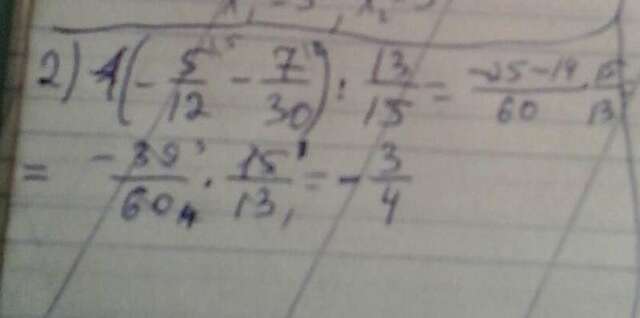 2) (-5/12 - 7/30) : 13/15 = -25-14/60 · 15/13
= -39/60 · 15/13 = -3/4